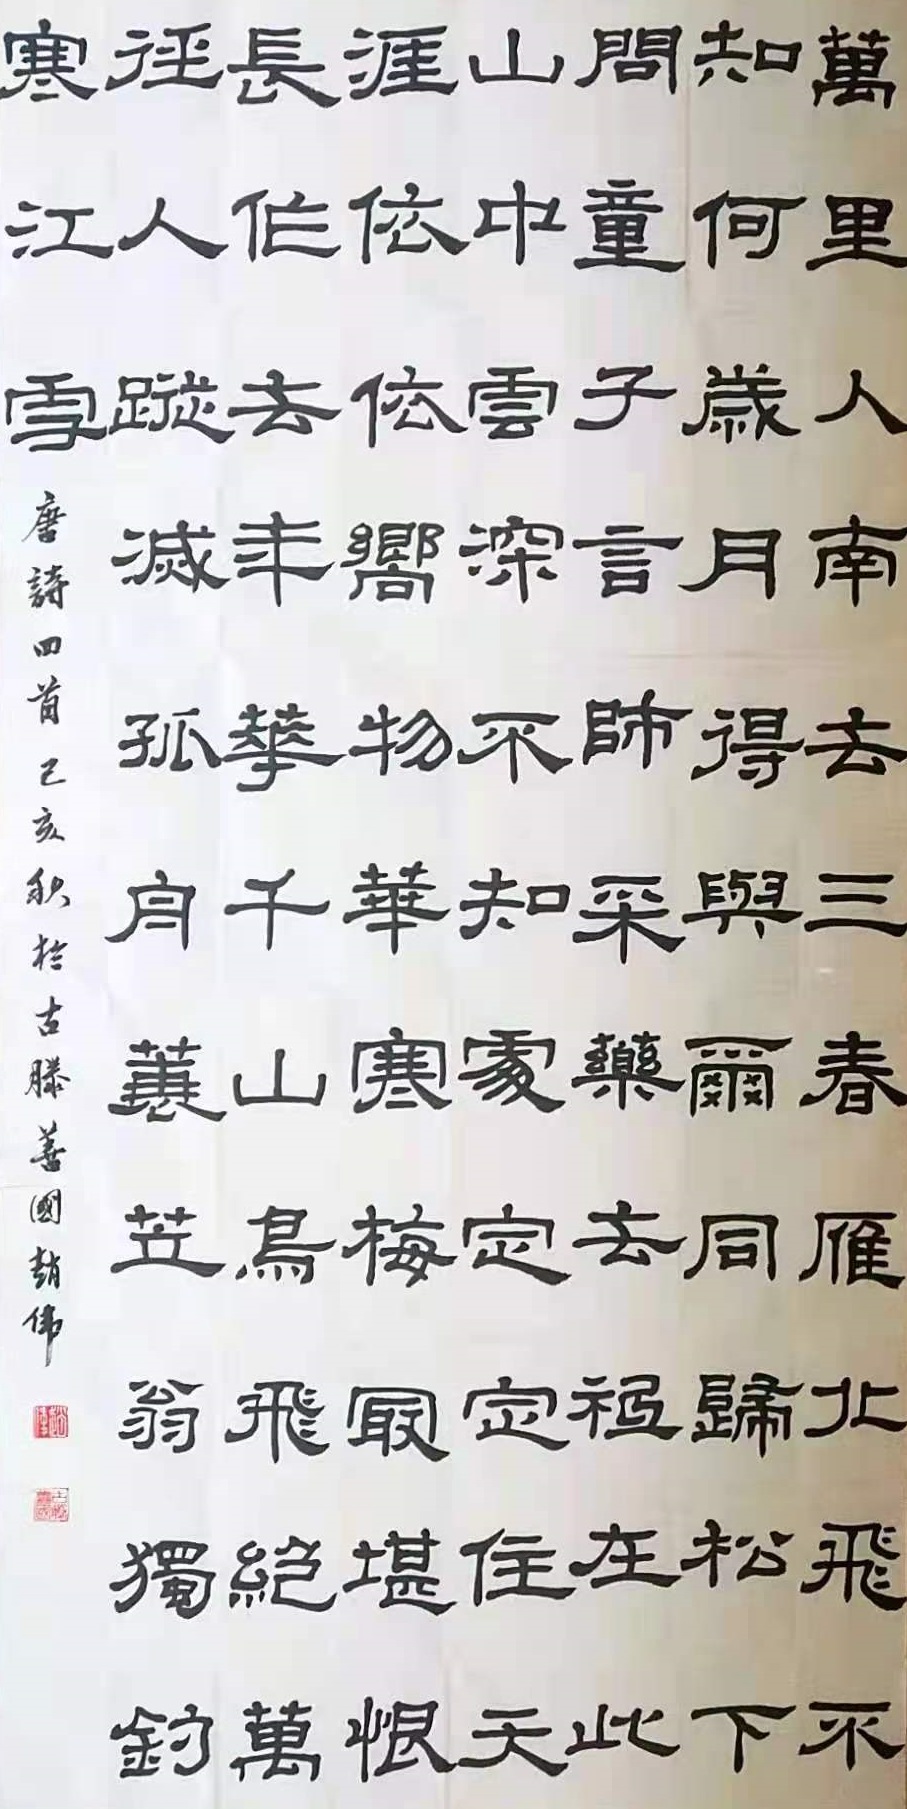 萬里人南去三春雁北飛不
知何歲月得與爾同歸松下
問童子言師采藥去祗在此
山中雲深不知處定定住天
涯依依嚮物華寒梅最堪恨
長作去年華千山鳥飛絕萬
徑人蹤滅孤舟蓑笠翁獨釣
寒江雪
唐詩四首己亥秋於古滕善國趙偉